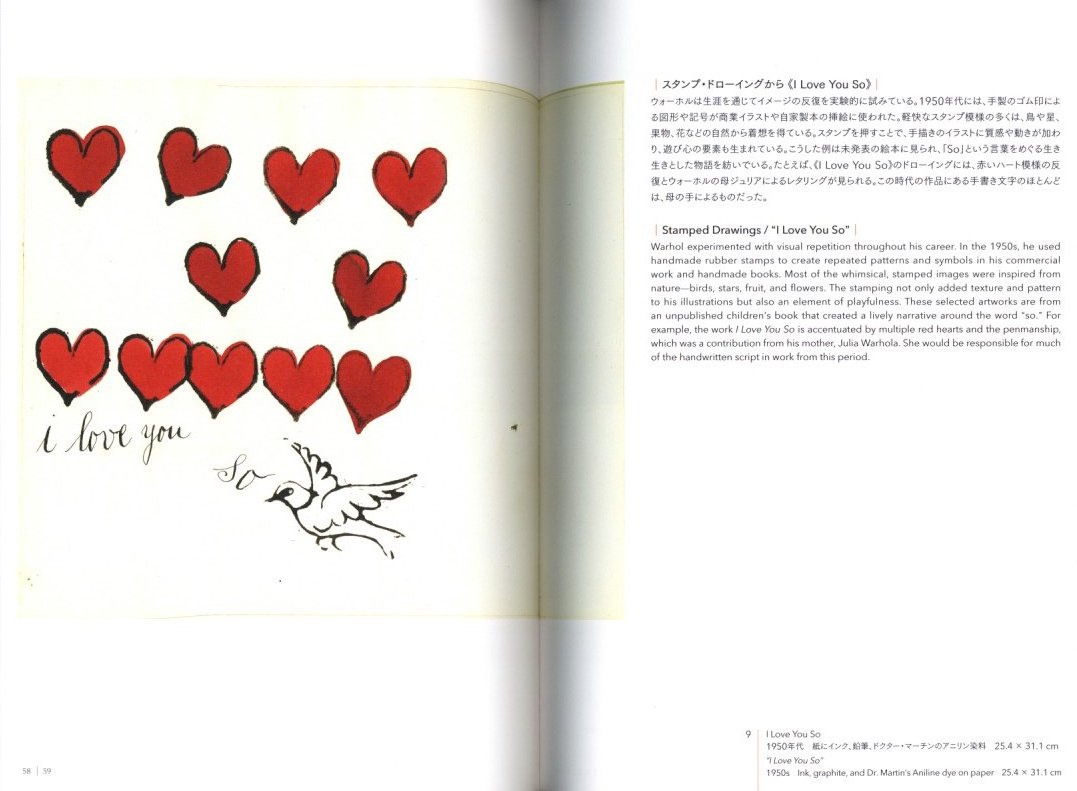 i love you
so
｜スタンプ・ドローイングから《I Love You So》｜
ウォーホルは生涯を通じてイメージの反復を実験的に試みている。1950年代には、手製のゴム印によ
る図形や記号が商業イラストや自家製本の挿絵に使われた。軽快なスタンプ模様の多くは、鳥や星、
果物、花などの自然から着想を得ている。スタンプを押すことで、手描きのイラストに質感や動きが加わ
り、遊び心の要素も生まれている。こうした例は未発表の絵本に見られ、「So」という言葉をめぐる生き
生きとした物語を紡いでいる。たとえば、《I Love You So》のドローイングには、赤いハート模様の反
復とウォーホルの母ジュリアによるレタリングが見られる。この時代の作品にある手書き文字のほとんど
は、母の手によるものだった。
｜Stamped Drawings / “I Love You So”｜
Warhol experimented with visual repetition throughout his career. In the 1950s, he used
handmade rubber stamps to create repeated patterns and symbols in his commercial
work and handmade books. Most of the whimsical, stamped images were inspired from
nature—birds, stars, fruit, and flowers. The stamping not only added texture and pattern
to his illustrations but also an element of playfulness. These selected artworks are from
an unpublished children’s book that created a lively narrative around the word “so.” For
example, the work I Love You So is accentuated by multiple red hearts and the penmanship,
which was a contribution from his mother, Julia Warhola. She would be responsible for much
of the handwritten script in work from this period.
9 I Love You So
1950年代 紙にインク、鉛筆、ドクター・マーチンのアニリン染料 25.4 × 31.1 cm
“I Love You So”
1950s Ink, graphite, and Dr. Martin’s Aniline dye on paper 25.4 × 31.1 cm
58 | 59